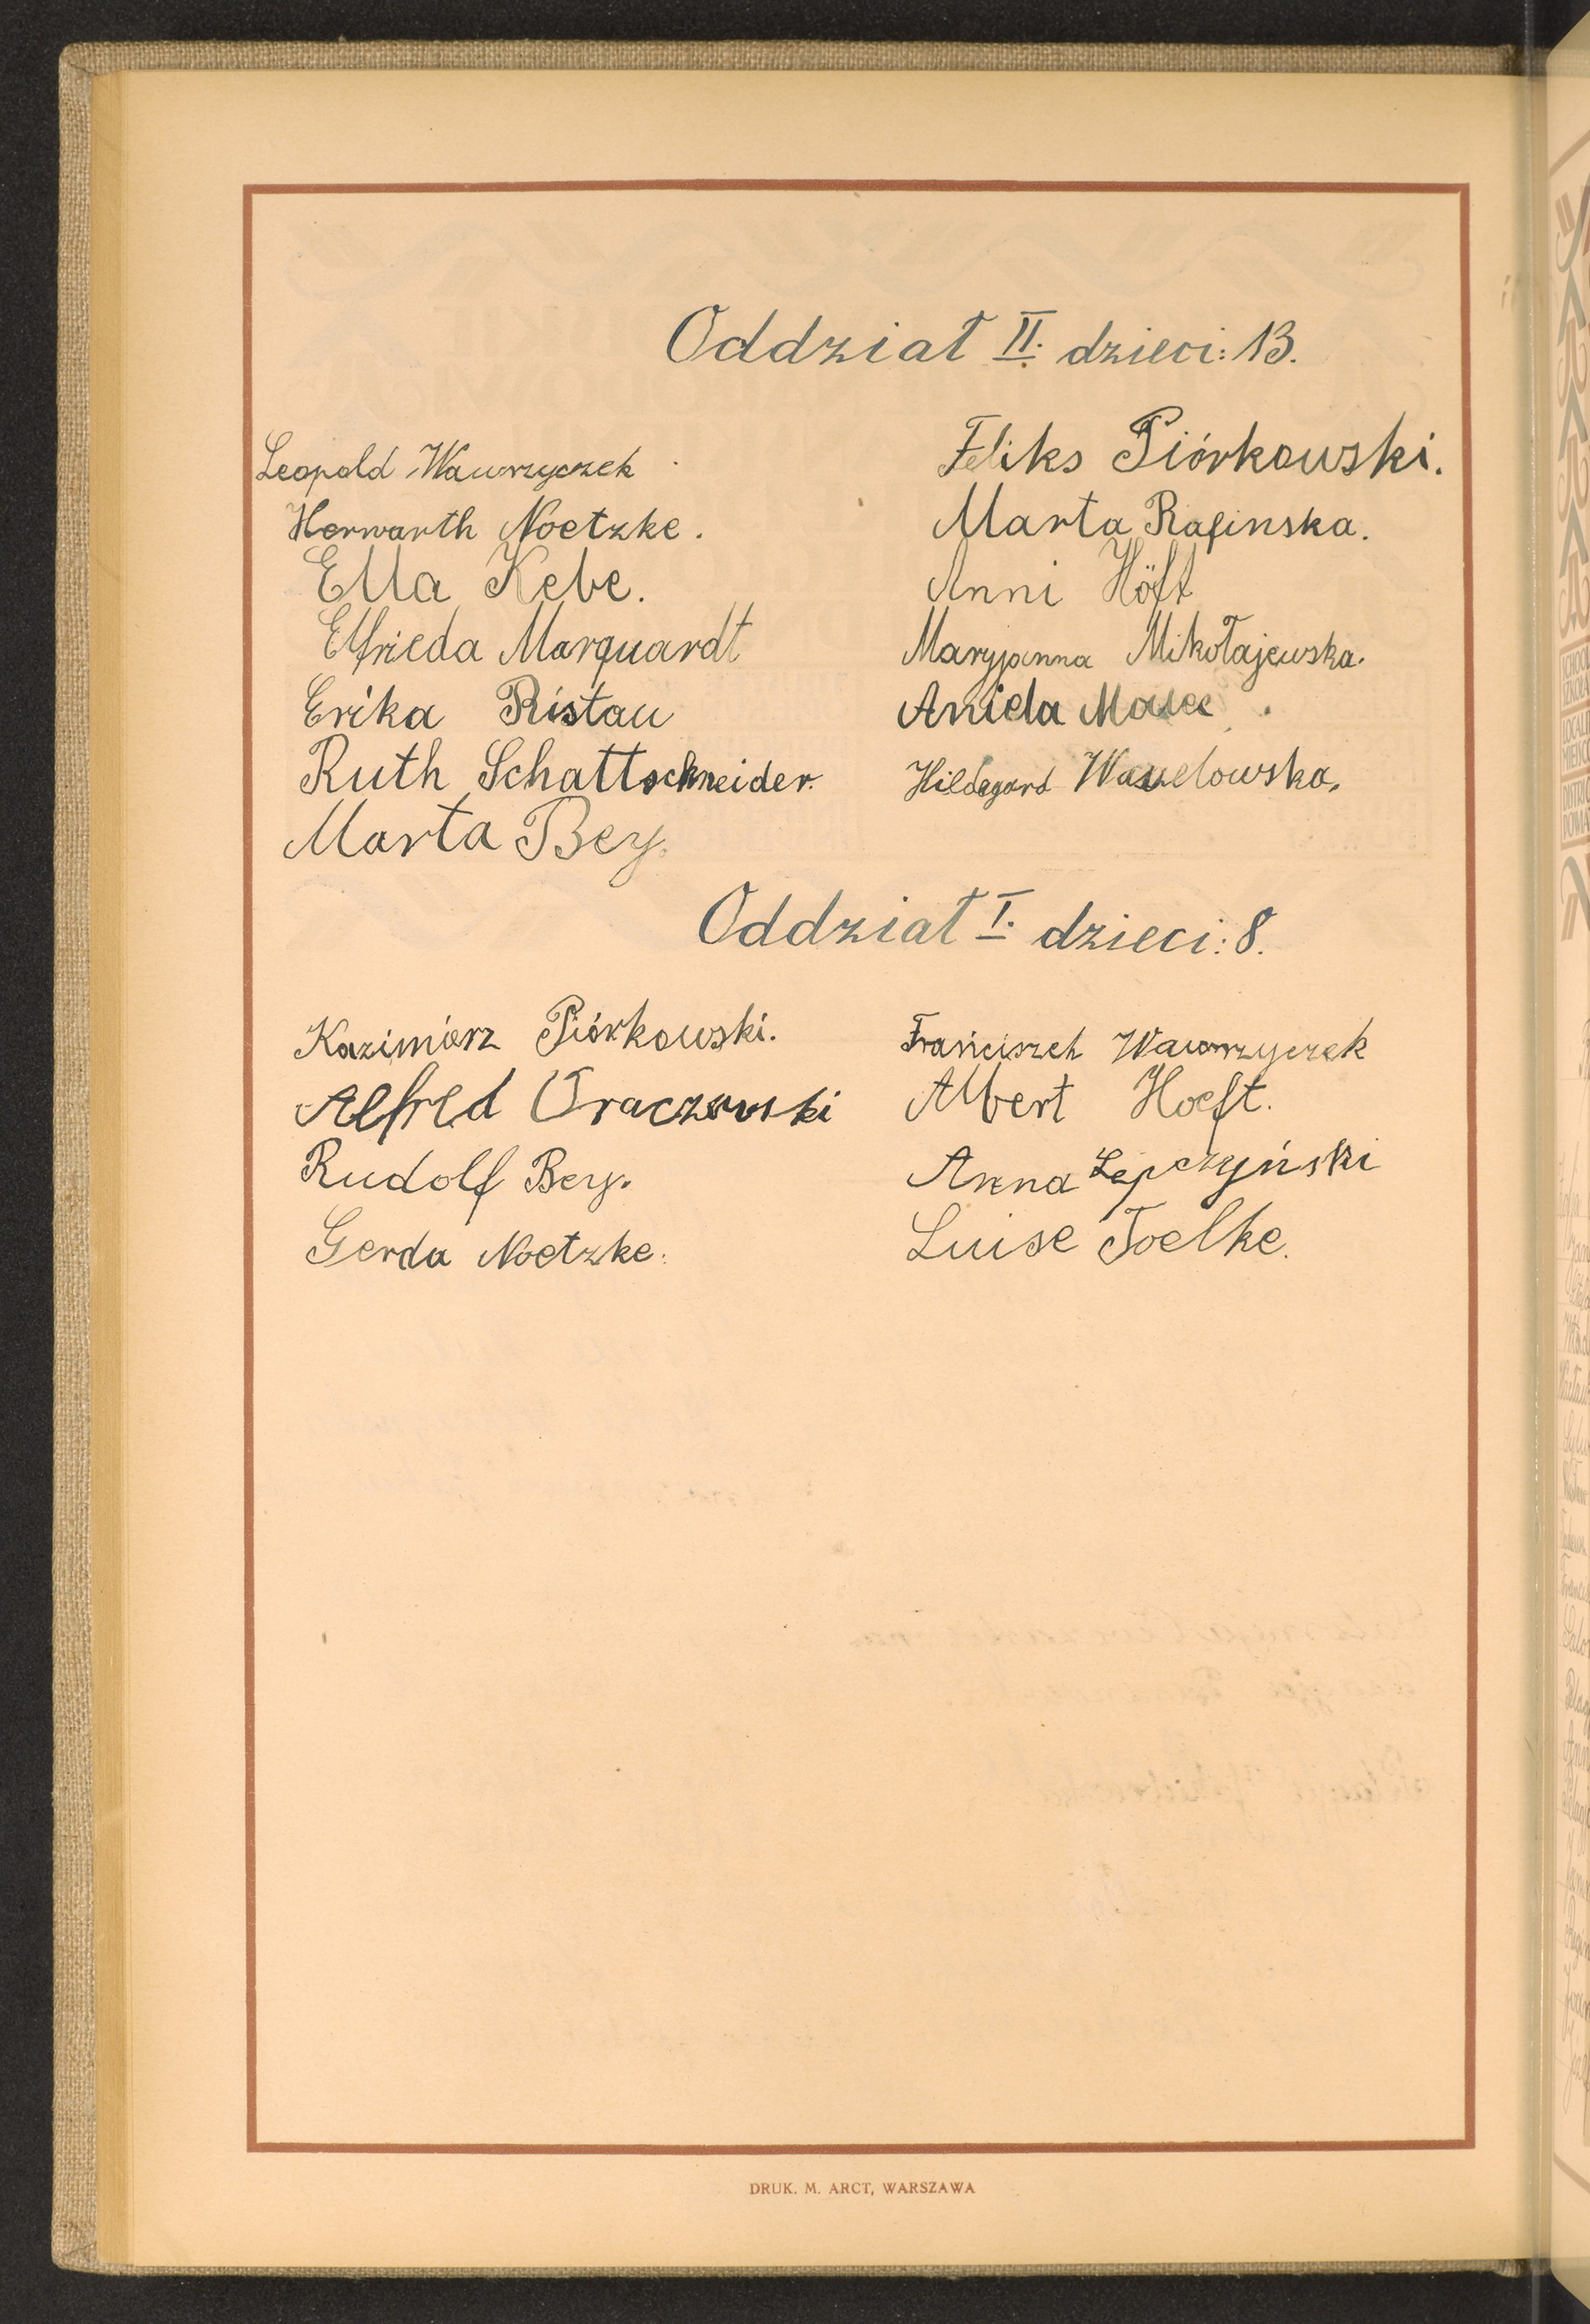 Oddział II. dzieci: 13.
Leopold Wawrzyczek
Herwarth Noetzke.
Ella Kebe.
Elfrieda Marquardt
Erika Ristau
Ruth Schattschneider.
Marta Bey.
Feliks Piórkowski.
Marta Rafinska.
Anni Höft
Maryjanna Mikołajewska.
Aniela
Hildegard
Oddział I. dzieci: 8.
Kazimierz Piórkowski.
Alfred
Rudolf Bey.
Gerda Noetzke.
Franciszek Wawrzyczek
Albert Hoeft.
Anna Lepczyński
Luise Toelke.
DRUK. M. ARCT, WARSZAWA